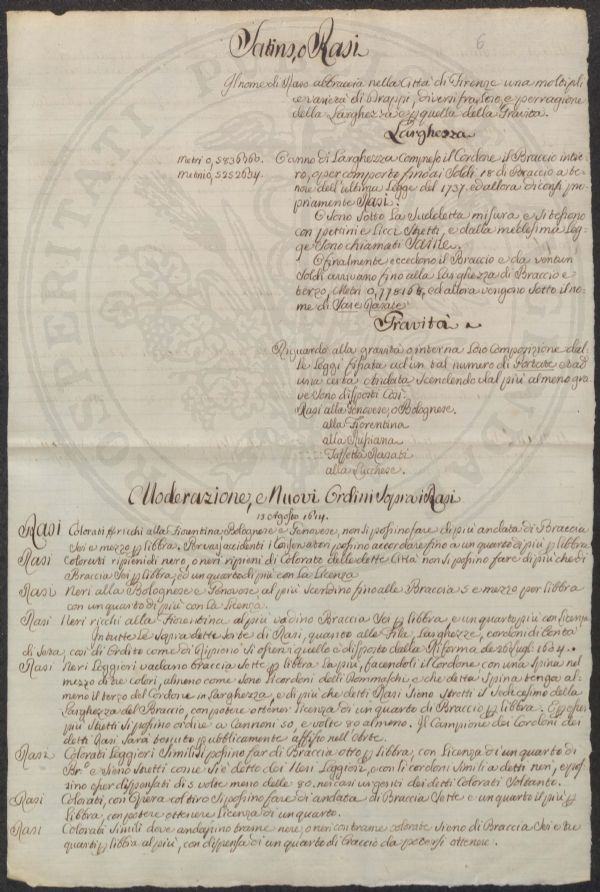 6
Satins, o Rasi
Il nome di Raso abbraccia nella Città di Firenze una moltipli
e varietà di Drappi, diversi fra loro, e per ragione
della Larghezza e p quella della Gravità.
Larghezza
Metri 0,5836366.
Metri 0,5252634.
O anno di Larghezza compreso il Cordone il Braccio inte
ro, o per comporto fino ai Soldi 18 di Braccio a te
nore dell'ultima Legge del 1737. ed allora diconsi pro
priamente Rasi.
O Sono Sotto La Suddetta misura e si tessono
con pettini e Licci Stretti, e dalla medesima Leg
ge Sono chiamati Saine.
O finalmente eccedono il Braccio e da ventun
Soldi arrivano fino alla Larghezza di Braccio e
terzo, Metri 0,778168, ed allora vengono Sotto il no
me di Rasate
Gravità
Riguardo alla gravità o interna Loro Composizione dal
le Leggi fissata ad un tal numero di Portate e ad
una certa Andata scendendo dal più al meno gra
ve Sono disposti Così.
Rasi alla Genovese, o Bolognese.
alla Fiorentina
alla Rusiana
Taffetta Rasati
alla Lucchese.
Moderazione, e Nuovi Ordini Sopra i Rasi
13 Agosto 1614.
Rasi Colorati ricchi alla Fiorentina, Bolognese e Genovese, non si possino fare di più andata di Braccia
Sei e mezzo p libbra. Per varj accidenti i Conservatori possino accordare fino a un quarto di più p libbra
Rasi Colorati ripieni di nero, o neri ripieni di Colorato delle dette Città non si possino fare di più che di
Braccia Sei p libbra, ed un quarto di più con La Licenza
Rasi Neri alla Bolognese e Genovese al più Scendino fino alle Braccia 5 e mezzo per libbra
con un quarto di più con la Licenza.
Rasi Neri ricchi alla Fiorentina al più vadino Braccia Sei p libbra, e un quarto più con Licenza
In tutte le Sopra dette Sorte di Rasi, quanto alle File, Larghezze, cordoni di Centa
di Seta, così di Ordito come di Ripieno Si osservi quello è disposto dalla Riforma de 26 1604.
Rasi Neri Leggieri vadano Braccia Sette p libbra la più, facendoli il Cordone con una Spina nel
mezzo di tre colori, almeno come Sono i Cordoni delli Dommaschi e che detta Spina tenga al
meno il terzo del Cordone in Larghezza, e di più che detti Rasi Sieno Stretti il Sedicesimo della
Larghezza del Braccio, con potere ottener Licenza di un quarto di Braccio p libbra. E p esser
più Stretti Si possino ordire a Cannoni 50, e volte 80 almeno. Il Campione dei Cordoni dei
detti Rasi Sarà tenuto pubblicamente affisso nell'Arte.
Rasi Colorati Leggieri Simili Si possino far di Braccia otto p libbra, con Licenza di un quarto di
Br.o e Sieno Stretti come Si è detto dei Neri Leggieri, e con li cordoni Simili a detti neri, e pos
sino esser dispensati di 5 volte meno delle 80. nei casi urgenti dei detti Colorati Soltanto.
Rasi Colorati, con Opera col tiro Si possino fare di andata di Braccia Sette e un quarto il più p
libbra, con potere ottenere Licenza di un quarto.
Rasi Colorati Simili dove andassino trame nere, o neri con trame colorate Sieno di Braccia Sei e tre
quarti p libbra al più, con dispensa di un quarto di braccio da potersi ottenere.